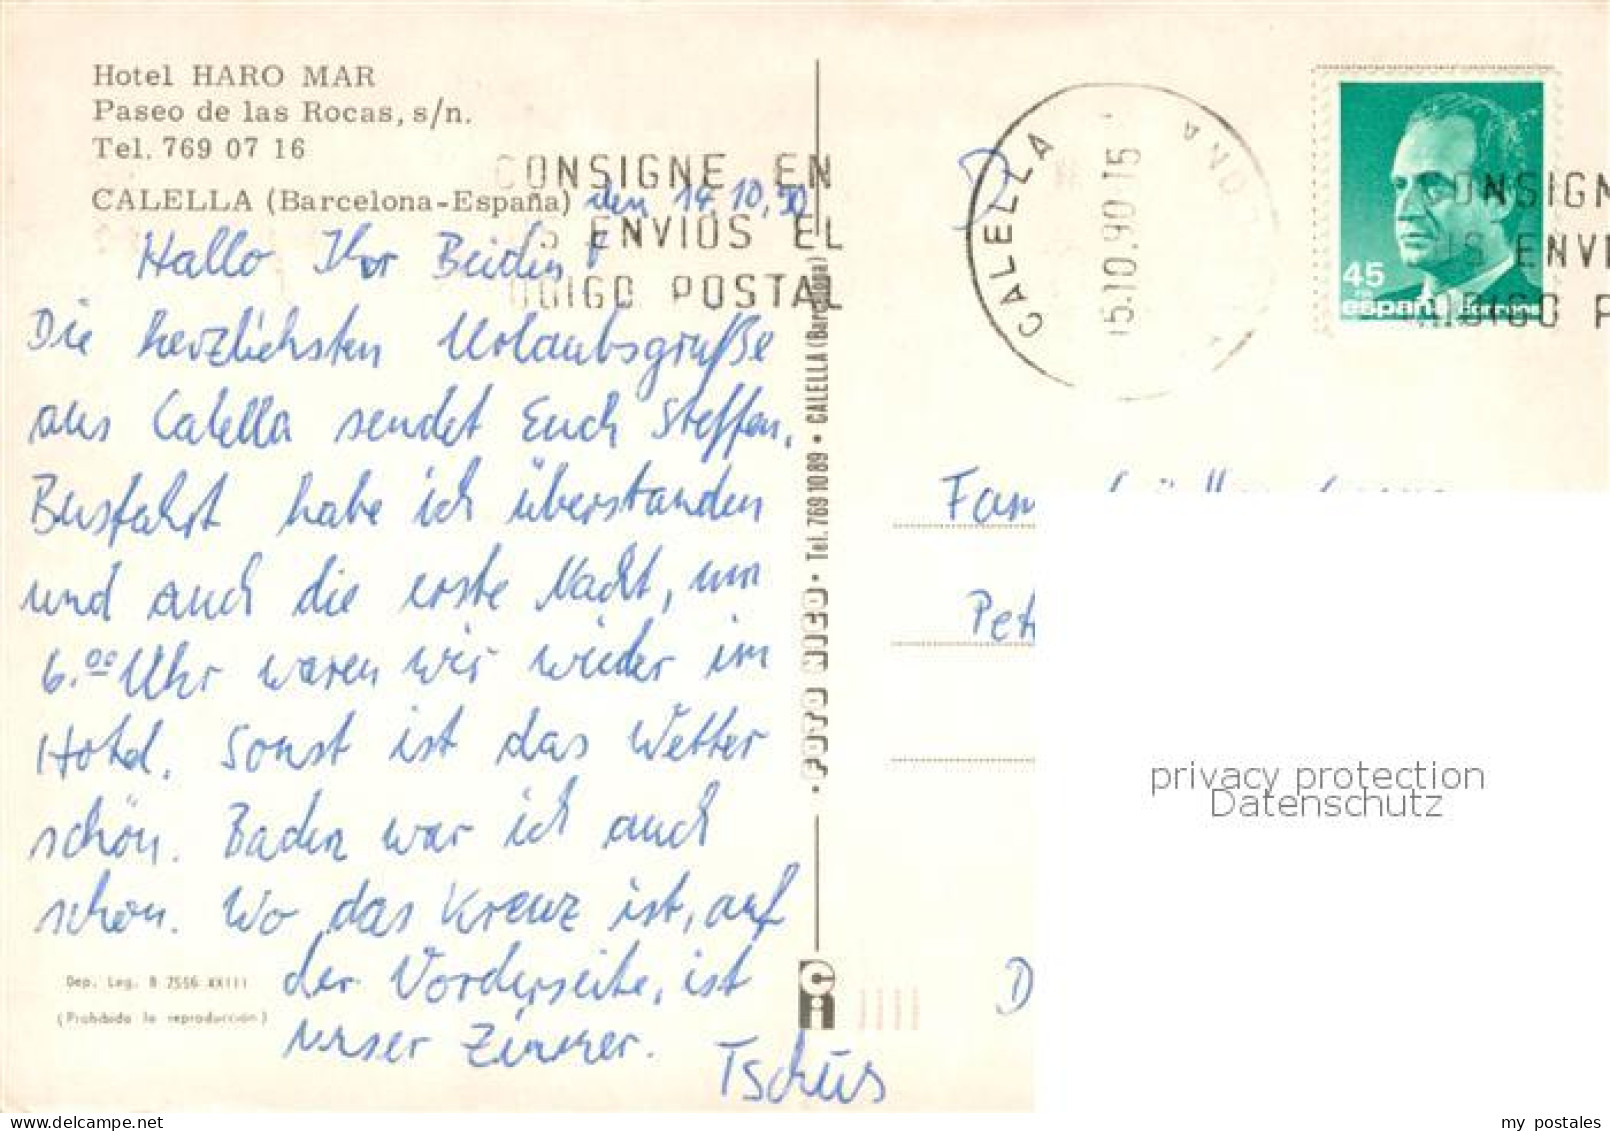 Hotel HARO MAR
Paseo de las Rocas, s/n.
Tel. 769 07 16
CALELLA (Barcelona-España)
den 14.10.90
Hallo Ihr Beiden!
Die herzlichsten Urlaubsgrüße
aus Calella sendet Euch Steffen.
Busfahrt habe ich überstanden
und auch die erste Nacht, um
6.00 Uhr waren wir wieder im
Hotel. Sonst ist das Wetter
schön. Baden war ich auch
schon. Wo das Kreuz ist, auf
der Vorderseite, ist
unser Zimmer.
Tschüs
Dep. Leg. B 7556-XXIII
(Prohibida la reproducción)
Tel. 769 10 89 • CALELLA (Barcelona)
CONSIGNE EN
ENVIOS EL
POSTAL
CALELLA
15.10.90 15
45
españa correos
CONSIGN
ENVI
D
Fam
Pet
D
privacy protection
Datenschutz
my postales